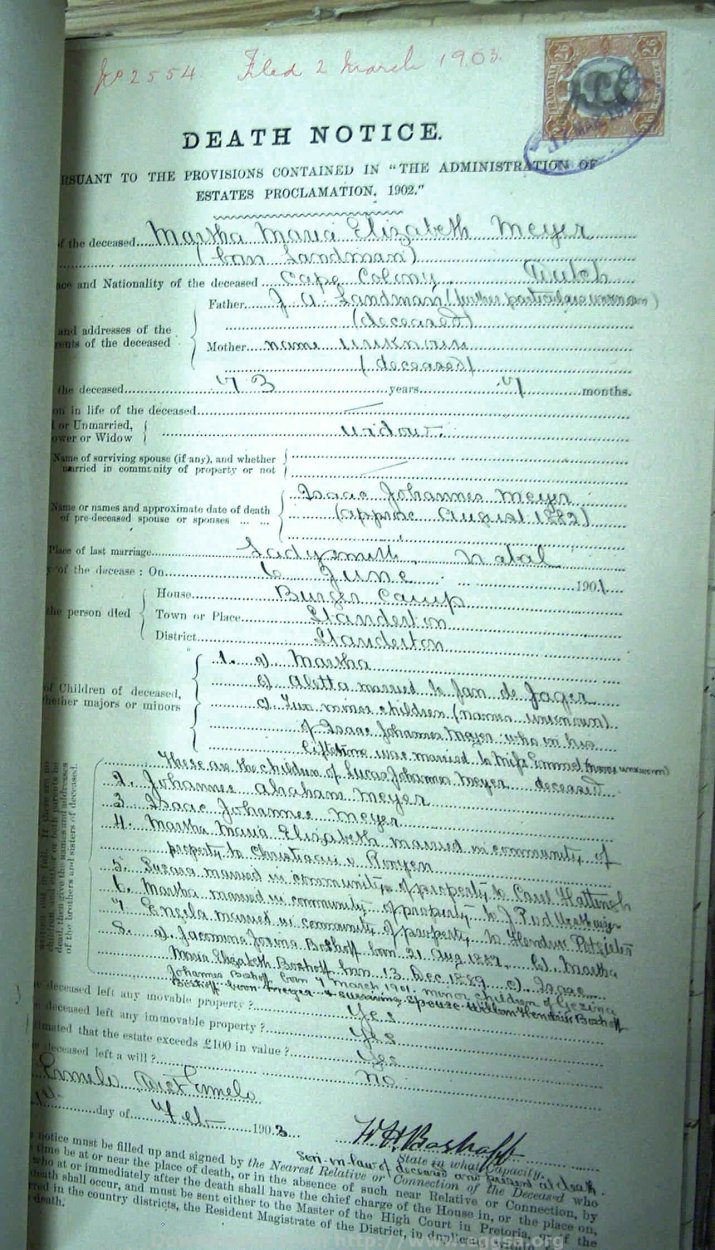 No 2554 Filed 2 March 1903.
DEATH NOTICE.
RSUANT TO THE PROVISIONS CONTAINED IN "THE ADMINISTRATION OF
ESTATES PROCLAMATION, 1902."
of the deceased Martha Maria Elizabeth Meyer
(born Landman)
ace and Nationality of the deceased Cape Colony Dutch
and addresses of the
rents of the deceased
Father J. A. Landman (further particulars unknown)
(deceased)
Mother name unknown
(deceased)
the deceased 73 years 7 months.
on in life of the deceased
l or Unmarried,
ower or Widow
widow
Name of surviving spouse (if any), and whether
married in community of property or not
Name or names and approximate date of death
of pre-deceased spouse or spouses
Isaac Johannes Meyer
(approx August 1882)
Place of last marriage Ladysmith, Natal
y of the decease : On 6 June 1901.
the person died
House Burger Camp
Town or Place Standerton
District Standerton
of Children of deceased,
hether majors or minors
1. a) Martha
b) Aletta married to Jan de Jager
c) Two minor children (names unknown)
of Isaac Johannes Meyer who in his
lifetime was married to Miss
These are the children of Lucas Johannes Meyer deceased
2. Johannes Abraham Meyer
3. Isaac Johannes Meyer
4. Martha Maria Elizabeth married in community of
property to Christiaan v. Rooyen
5. Susara married in community of property to Carel Hattingh
6. Martha married in community of property to J. P. v d Westhuizen
7. Engela married in community of property to Hendrik
8. a) Jacomina Josina Boshoff born 21 Aug 1887, b) Martha
Maria Elizabeth Boshoff, born 13 Dec 1889 c) Isaac
Johannes Boshoff born 7 March 1901. minor children of Gezina
Boshoff born Meyer & surviving spouse Willem Hendrik Boshoff
children, and either or both parents be
dead, then give the names and addresses
of the brothers and sisters of deceased.
e deceased left any movable property ? Yes
e deceased left any immovable property ? Yes
timated that the estate exceeds £100 in value ? Yes
e deceased left a will ? No
Ermelo Dist Ermelo
day of Feb 1903.
W H Boshoff
State in what Capacity.
Son-in-law of deceased and present at death.
notice must be filled up and signed by the Nearest Relative or Connection of the Deceased who
time be at or near the place of death, or in the absence of such near Relative or Connection, by
who at or immediately after the death shall have the chief charge of the House in, or the place on,
eath shall occur, and must be sent either to the Master of the High Court in Pretoria, of the
rred in the country districts, the Resident Magistrate of the District, in duplicate
death.
http://www.eggsa.org